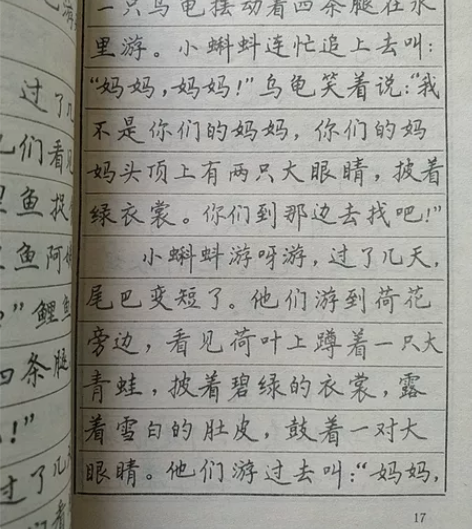 过了几
们看见
鱼捉
鱼阿
”鲤鱼
四条腿
！”
过了几
一只乌龟摆动着四条腿在水
里游。小蝌蚪连忙追上去叫：
“妈妈，妈妈！”乌龟笑着说：“我
不是你们的妈妈，你们的妈
妈头顶上有两只大眼睛，披着
绿衣裳。你们到那边去找吧！”
小蝌蚪游呀游，过了几天，
尾巴变短了。他们游到荷花
旁边，看见荷叶上蹲着一只大
青蛙，披着碧绿的衣裳，露
着雪白的肚皮，鼓着一对大
眼睛。他们游过去叫：“妈妈，
17